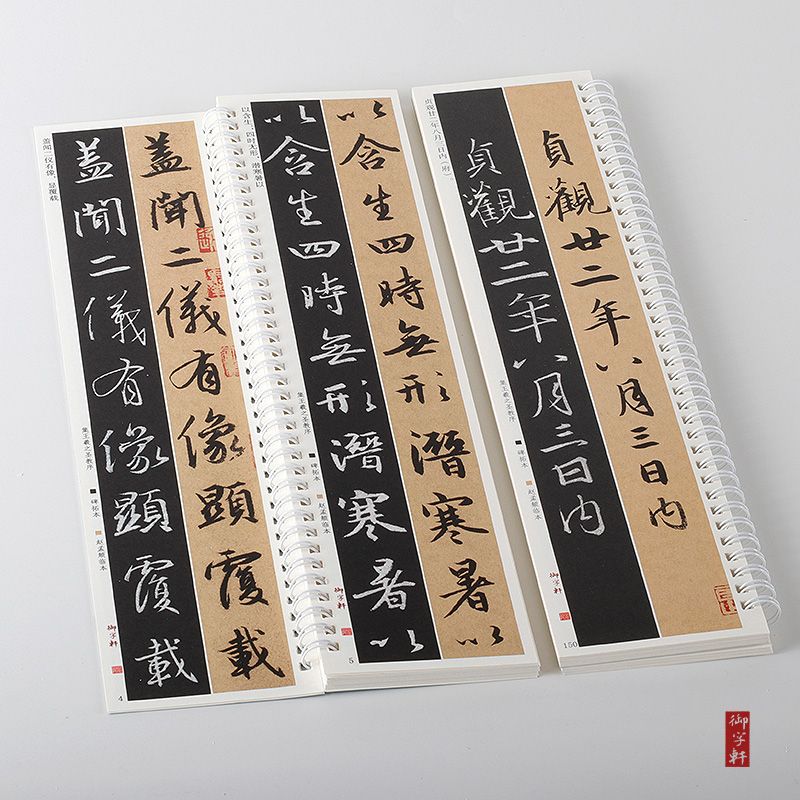 盖闻二仪有像，显覆载
蓋聞二儀有像顯覆載
蓋聞二儀有像顯覆載
集王羲之圣教序 ■ 碑拓本 ■ 赵孟頫临本
御字軒
4
以含生。四时无形，潜寒暑以
以含生四時無形潛寒暑以
以含生四時無形潛寒暑以
集王羲之圣教序 ■ 碑拓本 ■ 赵孟頫临本
御字軒
5
贞观廿二年八月三日内（附）
貞觀廿二年八月三日内
貞觀廿二年八月三日内
集王羲之圣教序 ■ 碑拓本 ■ 赵孟頫临本
御字軒
150
御字軒